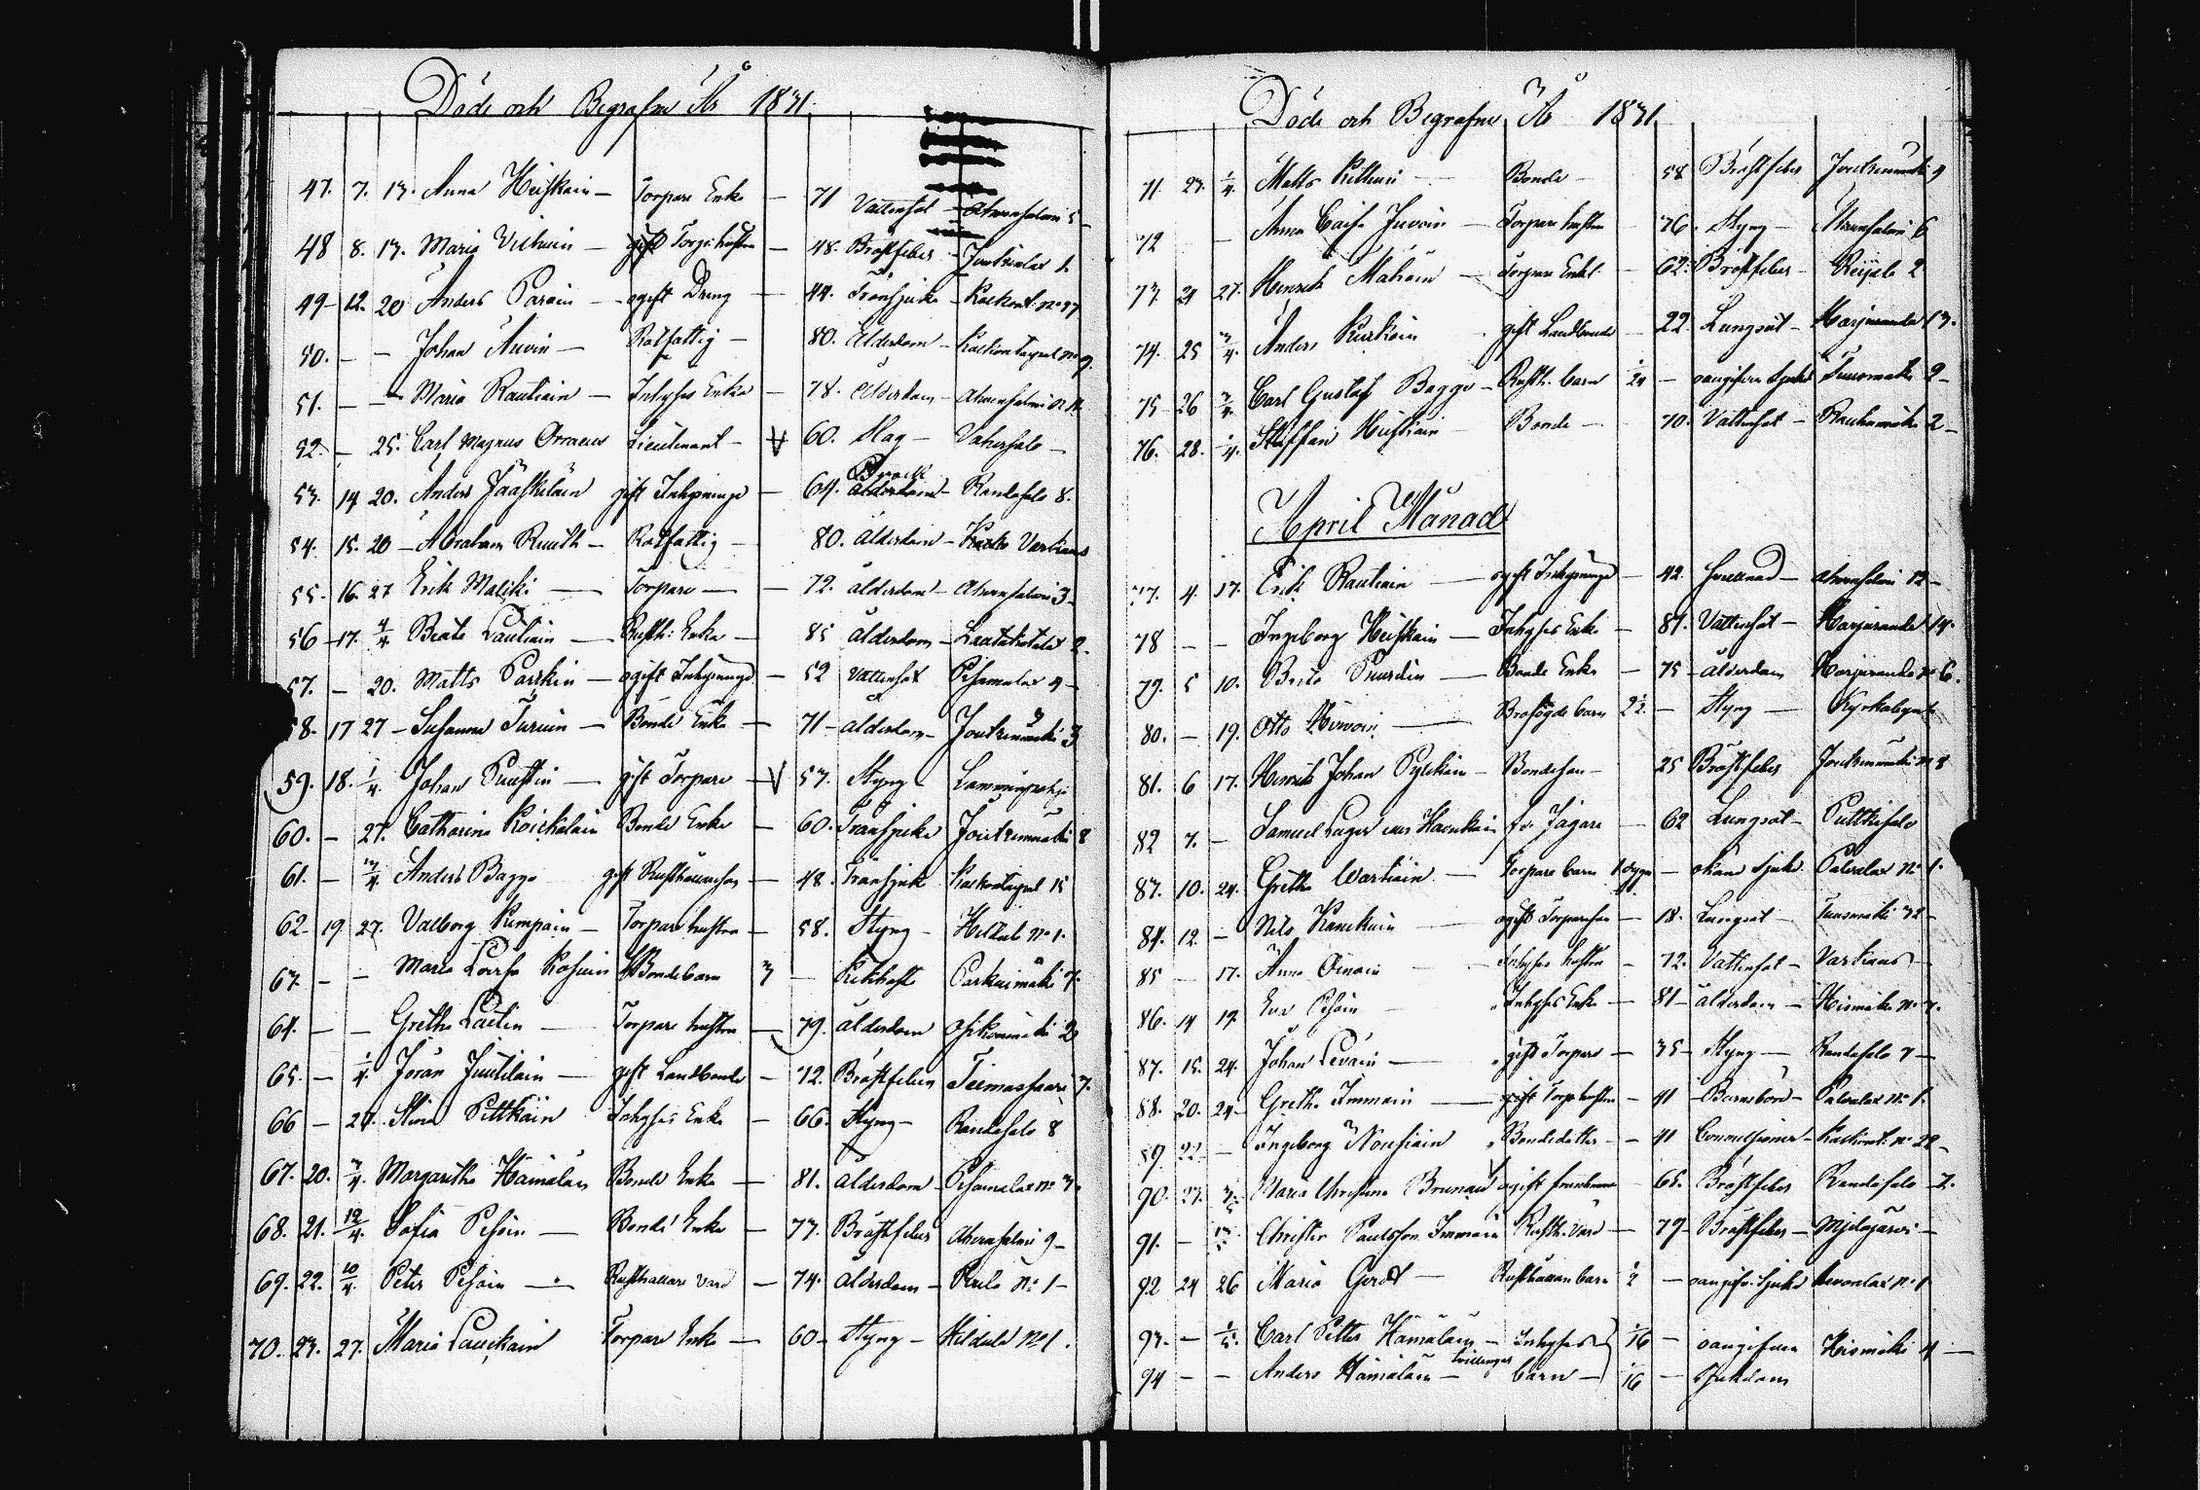 Döde och Begrafne År 1831.
47. 7. 13. Anna Heiskain — Torpare Enka — 71 Vattensot — Ahvensalmi 5
48 8. 13. Maria Vichuin — gift Torp: hustru — 48. Bröstfeber — Joutsenlax 1.
49 — 12. 20 Anders Parain — ogift Dreng — 44. Transjuka — Kackont. No 37
50. — — Johan Auvin — Rotfattig — 80. Ålderdom — Kackontaipal No 9.
51. — — Maria Rautiain — Inhyses Enka — 78. Ålderdom — Ahvensalmi
52. — 25. Carl Magnus Orraeus Lieutenant — 60. Slag — Vahersalo —
53. 14 20. Anders Jääskeläin gift Inhysinge — 64. Ålderdom — Randasalo 8.
54. 15. 20 — Abraham Ruuth — Rotfattig — 80. Ålderdom — Varkaus
55. 16. 27 Erik Malski — Torpare — 72. Ålderdom — Ahvensalmi 3 —
56 — 17. 4/4 Beata Lautiain — Rusth: Enka — 85 Ålderdom — Laatukatala 2.
57. — 20. Matts Parkin — ogift Inhysinge — 52 Vattensot Pihamalax 4 —
58. 17 27 — Susanna Turuin — Bonde Enka — 71 — Ålderdom — Joutsenmäki 3
59. 18. 1/4. Johan Puustin — gift Torpare — 57. Styng — Lamminpohja
60. — 27. Catharina Koickalain Bonde Enka — 60. Transjuka Joutsenmäki 8
61. — 3/4. Anders Bagge gift Rusthållareson — 48. Transjuk Kackontaipal 15
62. — 19 27. Valborg Kumpain — Torpare hustru — 58. Styng — Heilul No 1.
63. — — Maria Lovisa Kosuin Bondebarn 3 — Kikhosta Parkuimäki 7.
64. — — Gretha Laitin — Torpare hustru — 79. Ålderdom Osikonmäki 2
65. — 1/4. Jöran Juutilain — gift Landbonde — 72. Bröstfeber Teemassaari 7.
66 — 27. Stina Pittkäin Inhyses Enka — 66. Styng — Randasalo 8
67. 20. 3/4. Margaretha Hämäläin Bonde Enka — 81. Ålderdom — Pihamalax No 3.
68. 21. 12/4. Sofia Pesoin — Bonde Enka — 77. Bröstfeber Ahvensalmi 9 —
69. 22. 10/4. Peter Pesoin — Rusthållare Vard — 74. Ålderdom — No 1 —
70. 23. 27. Maria Lauckain Torpare Enka — 60 — Styng — Heilula No 1.
Döde och Begrafne År 1831
71 23. 1/4. Matts Kettuin — Bonde — 58 Bröstfeber Joutsenmäki 9
72 — Anna Caisa Juvoin — Torpare hustru — 76. Styng — Ahvensalmi 6
73. 24 27. Henrik Makoin — Torpare Enkl. — 62. Bröstfeber — 2
74. 25 3/4. Anders Kurkoin gift Landbonde — 22. Lungsot — Harjuranda 13.
75 26 3/4. Carl Gustaf Bagge — Rusth. barn 1/24 — oangifven sjukd Tuusmäki 2 —
76. 28. 1/4. Staffan Heiskain Bonde — 70. Vattensot — Rauhamäki 2 —
April Månad
77. 4. 17. Erik Rautiain — ogift Inhysinge — 42. Ahvensalmi 12 —
78 — — Ingeborg Heiskain — Inhyses Enka — 81. Vattensot — Harjuranda 14.
79. 5 10. Brita Puurdin — Bonde Enka — 75 — Ålderdom Harjuranda No 6.
80. — 19. Otto Hirvoin — barn — Styng — Kyrkobyn
81. 6 17. Henrik Johan Pylckäin — Bondeson — 25 Bröstfeber Joutsenmäki No 8
82 7. — Samuel Lager f. d. Jägare — 62 Lungsot — Puttkisalo
83. 10. 24. Gretha Wartiain — Torpare barn 1 dygn — okänd sjukd. Palvalax No 1.
84. 12. — Nils Kauckain — ogift Torpareson — 18. Lungsot — Tuusmäki 32 —
85 17. Anna Oinoin — Inhyses hustru — 72. Vattensot — Varkaus —
86. 14 17. Eva Pesoin Inhyses Enka — 81 — Ålderdom — Hirmäki No 7.
87. 15. 24. Johan Levain — gift Torpare — 35 — Styng — Randasalo 7 —
88. 20. 24 — Gretha Immoin — gift Torp. hustru — 41 — Barnsbörd — Palvalax No 1.
89. 22. — Ingeborg Nousiain Bondedotter — 41 Convulsioner — Kackont. No 22 —
90. 23. 3/5 Maria Christina Brunou ogift 65. Bröstfeber Randasalo 2.
91. — 13/5 Christer Paulsson Immoin Rusth. Vard — 79 — Bröstfeber — Mjelajärvi —
92 24 26 Maria Gerdt — Rusthållare barn 1/2 — oangifv. sjukd No 1
93. — 1/5. Carl Petter Hämäläin — Inhyses 1/16 — oangifven Hirsmäki 4 —
94 — — Anders Hämäläin — tvillingar barn — 1/16 — Sjukdom